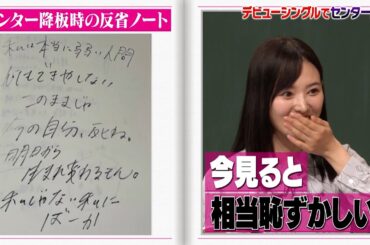 センター降板時の反省ノート
私は本当に弱い人間
何もできやしない、
このままじゃ
今の自分、あとね。
明日から
生まれ変わるてん。
私じゃない私に
ばーか
デビューシングルでセンター
今見ると
相当恥ずかしい